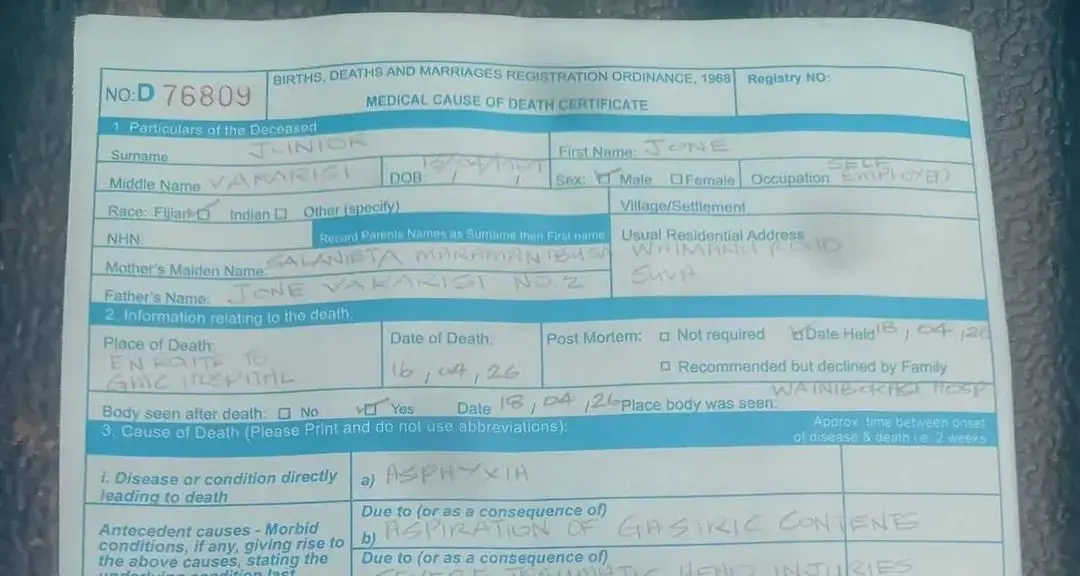 NO: D 76809
BIRTHS, DEATHS AND MARRIAGES REGISTRATION ORDINANCE, 1968
MEDICAL CAUSE OF DEATH CERTIFICATE
Registry NO:
1. Particulars of the Deceased
Surname JUNIOR
First Name: JONE
Middle Name VAKARISI
DOB:
Sex: Male Female
Occupation SELF EMPLOYED
Race: Fijian Indian Other (specify)
Village/Settlement
NHN:
Record Parents Names as Surname then First name
Usual Residential Address
WAIMANU ROAD
SUVA
Mother's Maiden Name: SALANIETA
Father's Name: JONE VAKARISI NO.2
2. Information relating to the death:
Place of Death:
EN ROUTE TO
HOSPITAL
Date of Death:
16, 04, 26
Post Mortem: Not required Date Held 18, 04, 26
Recommended but declined by Family
Body seen after death: No Yes Date 18, 04, 26 Place body was seen: WAINIBOKASI HOSP
3. Cause of Death (Please Print and do not use abbreviations):
Approx. time between onset
of disease & death i.e. 2 weeks
i. Disease or condition directly
leading to death
a) ASPHYXIA
Due to (or as a consequence of)
b) ASPIRATION OF GASTRIC CONTENTS
Antecedent causes - Morbid
conditions, if any, giving rise to
the above causes, stating the
underlying condition last
Due to (or as a consequence of)
SEVERE TRAUMATIC HEAD INJURIES